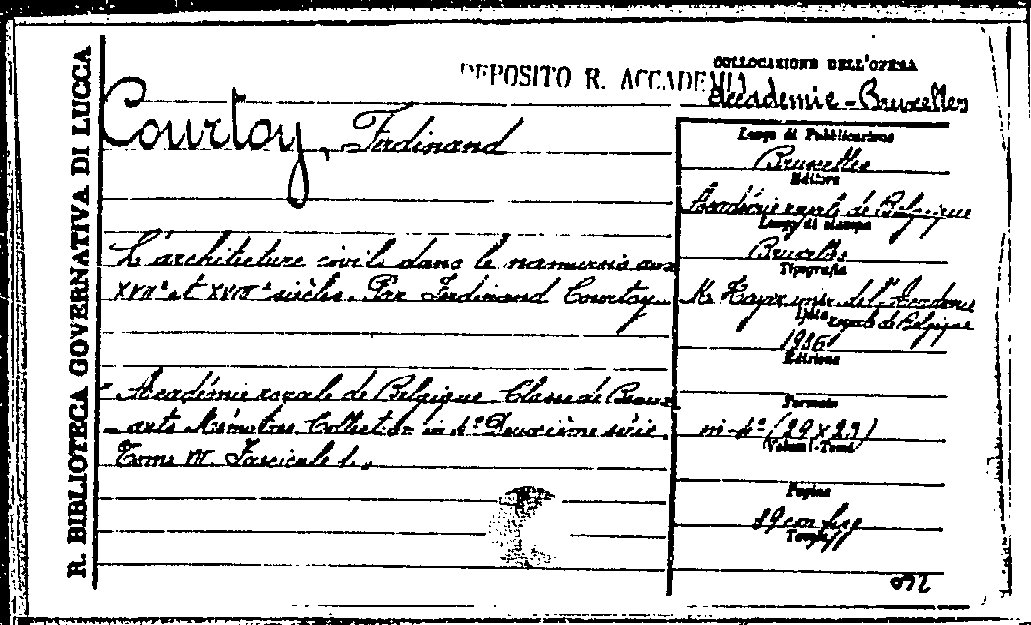 R. BIBLIOTECA GOVERNATIVA DI LUCCA
DEPOSITO R. ACCADEMIA
COLLOCAZIONE DELL'OPERA
Accademie - Bruxelles
Courtoy, Ferdinand
L'architecture civile dans le namurois aux
XVIIe et XVIIIe siècles. Par Ferdinand Courtoy.
Académie royale de Belgique. Classe des Beaux
-arts. Mémoires. Collection in 4° Deuxième série.
Tome IV. Fascicule 1.
Luogo di Pubblicazione
Bruxelles
Editore
Académie royale de Belgique
Luogo di stampa
Bruxelles
Tipografia
M. Hayez impr. de l'Académie
royale de Belgique
Data
1936
Edizione
Formato
in-4° (29x23)
Volumi-Tomi
Pagine
con fig
Tavole